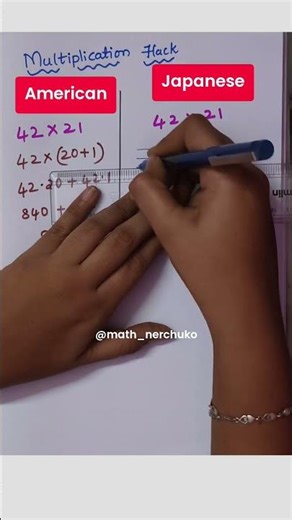 Multiplication Hack
American
Japanese
42 × 21
42 × 21
42 × (20+1)
42·20 + 42·1
840 +
@math_nerchuko